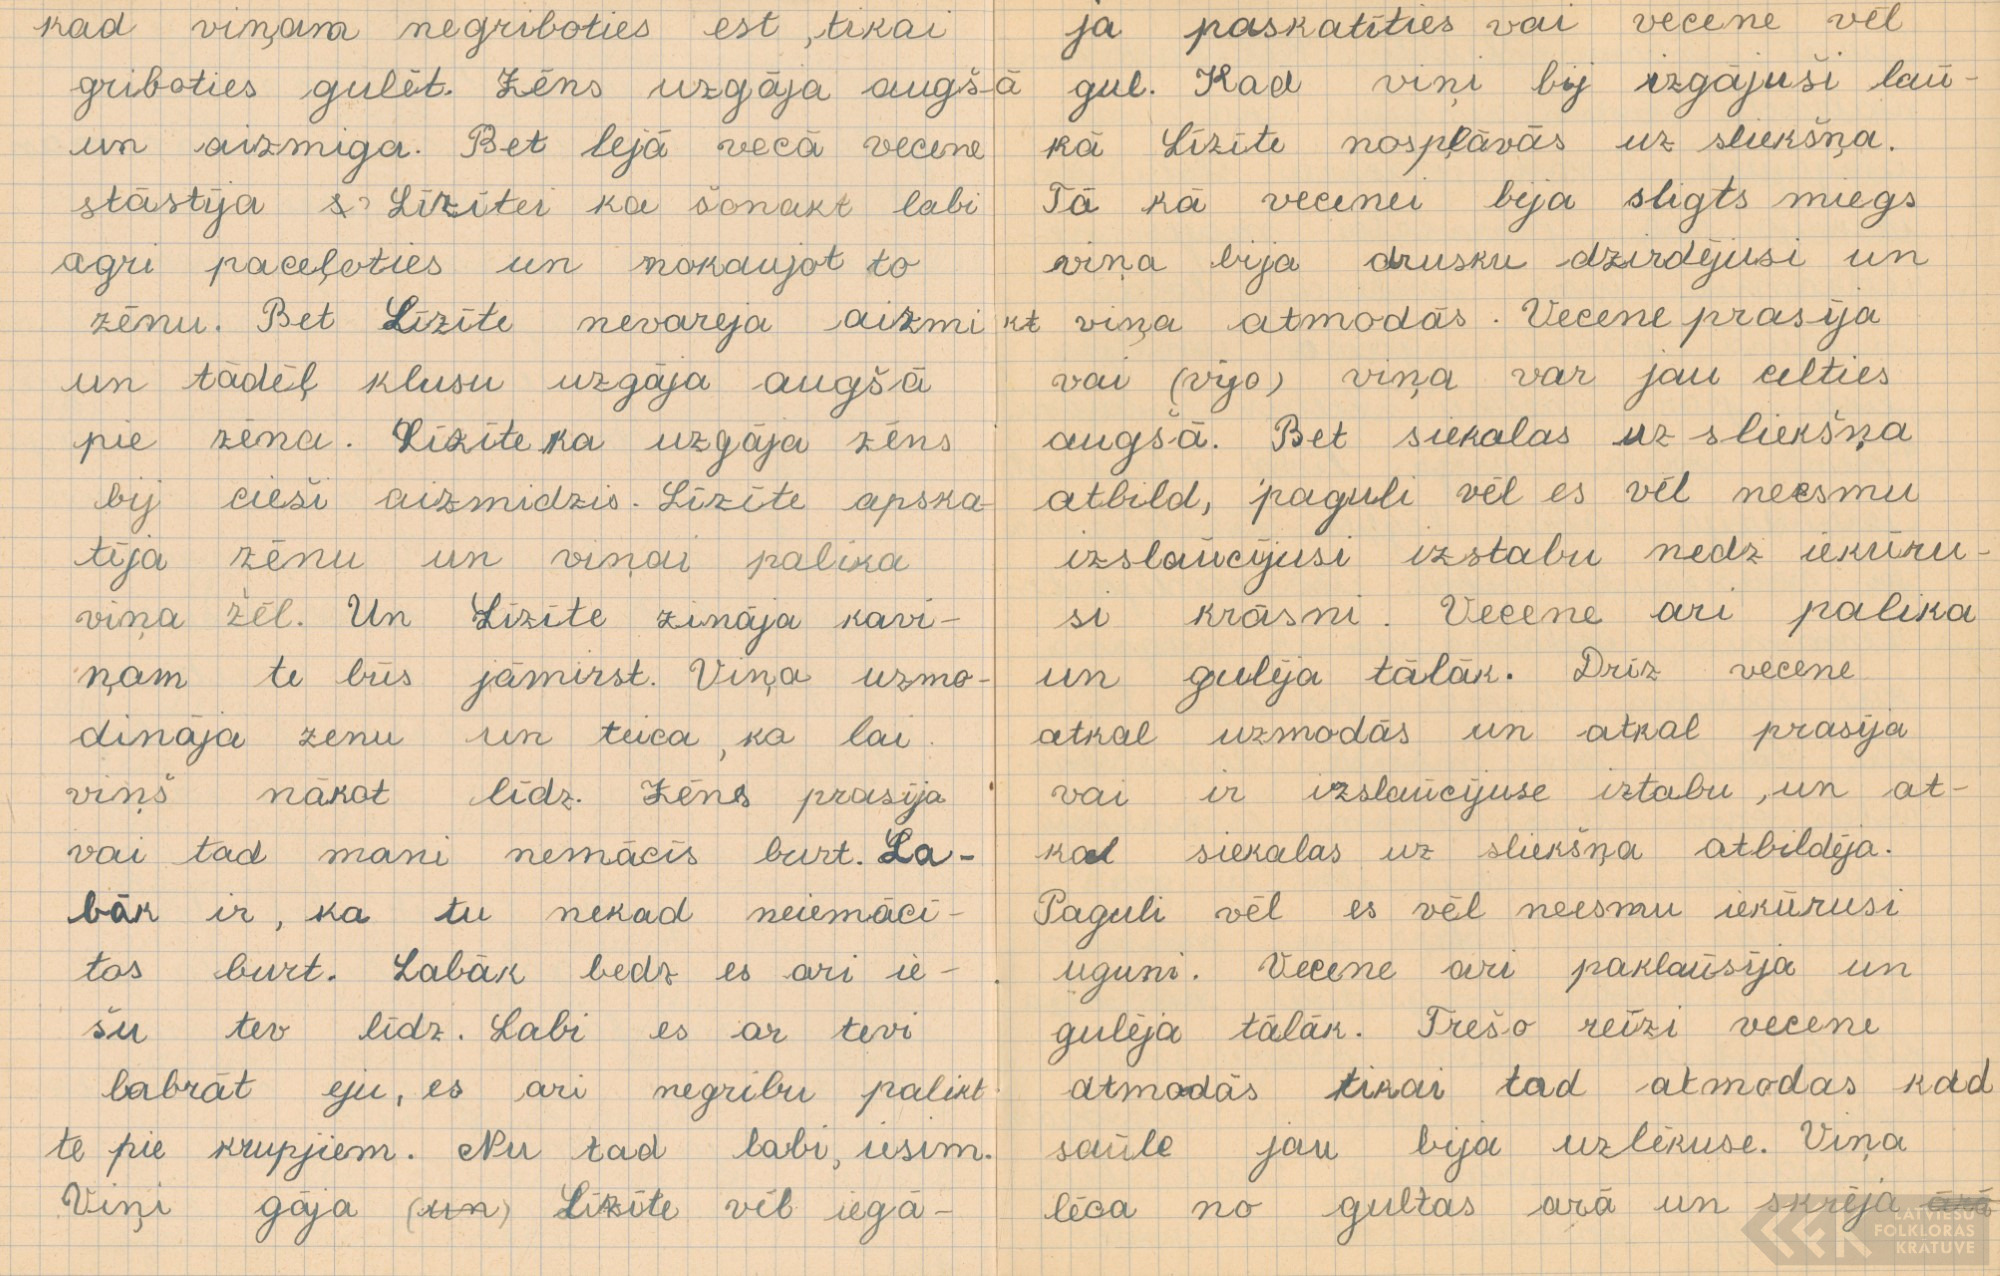 kad viņam negriboties est, tikai
griboties gulēt. Zēns uzgāja augš-ā
un aizmiga. Bet lejā vecā vecene
stāstīja Līzītei ka šonakt labi
agri paceļoties un nokaujot to
zēnu. Bet Līzīte nevareja aizmi kt
un tādēļ klusu uzgāja augšā
pie zēna. Līzīte ka uzgāja zēns
bij cieši aizmidzis. Līzīte apska-
tīja zēnu un viņai palika
viņa žēl. Un Līzīte zināja kavi-
ņam te būs jāmirst. Viņa uzmo-
dināja zenu un teica, ka lai
viņš nākot līdz. Zēns prasīja
vai tad mani nemācīs burt. La-
bāk ir, ka tu nekad neiemācī-
tos burt. Labāk bedz es ari ie-
šu tev līdz. Labi es ar tevi
labrāt eju, es ari negribu palikt
te pie krupjiem. Nu tad labi, iesim.
Viņi gāja (un) Līzīte vēl iegā-
ja paskatīties vai vecene vēl
gul. Kad viņi bij izgājuši lau-
kā Līzīte nospļāvās uz sliekšņa.
Tā kā vecenei bija sligts miegs
viņa bija drusku dzirdējusi un
viņa atmodās. Vecene prasīja
vai (viņo) viņa var jau celties
augšā. Bet siekalas uz sliekšņa
atbild, paguli vēl es vēl neesmu
izslaūcījusi izstabu nedz iekūru-
si krāsni. Vecene ari palika
un gulēja tālāk. Drīz vecene
atkal uzmodās un atkal prasīja
vai ir izslaūcījuse iztabu, un at-
kal siekalas uz sliekšņa atbildēja.
Paguli vēl es vēl neesmu iekūrusi
uguni. Vecene ari paklaūsīja un
gulēja tālāk. Trešo reīzi vecene
atmodās tikai tad atmodas kad
saūle jau bija uzlēkuse. Viņa
lēca no gultas arā un skrēja ārā
LATVIEŠU
FOLKLORAS
KRATUVE